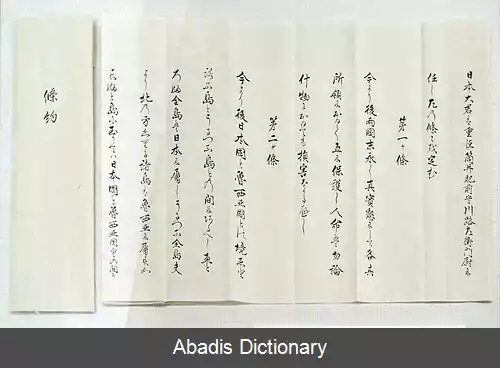 日本大君の重臣筒井肥前守川路左衛門尉に
任し左の條々を定む
第一ヶ條
今より後両國末永く真實懇にして各其
所領におゐて互に保護し人命は勿論
什物におゐても損害なかるへし
第二ヶ條
今より後日本國と魯西亜國との境ゑと
ろふ島とうるつふ島との間にあるへしゑと
ろふ全島は日本に属しうるつふ全島夫
より北の方くりる諸島は魯西亜に属すか
らふと島に至りては日本國と魯西亜國との間
條約
Abadis Dictionary